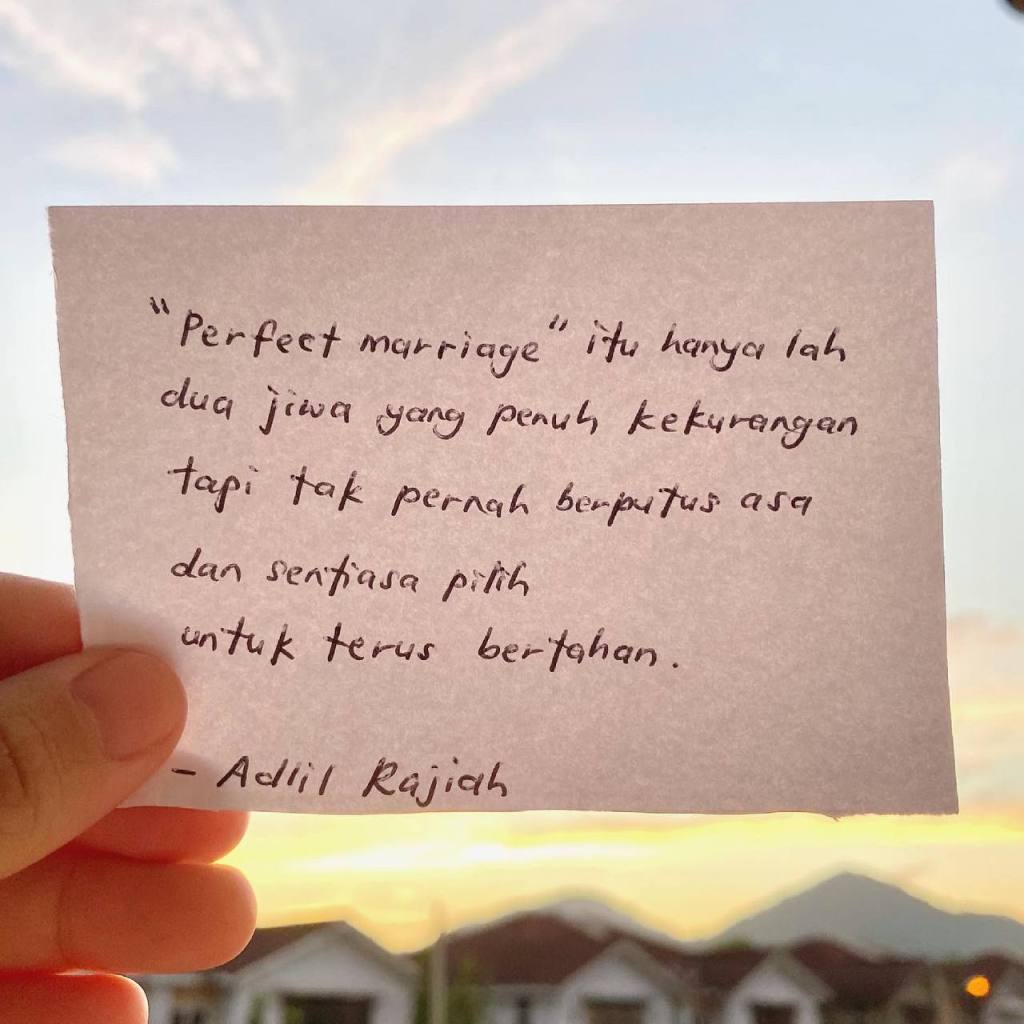 "Perfect marriage" itu hanya lah
dua jiwa yang penuh kekurangan
tapi tak pernah berputus asa
dan sentiasa pilih
untuk terus bertahan.
- Adlil Rajiah